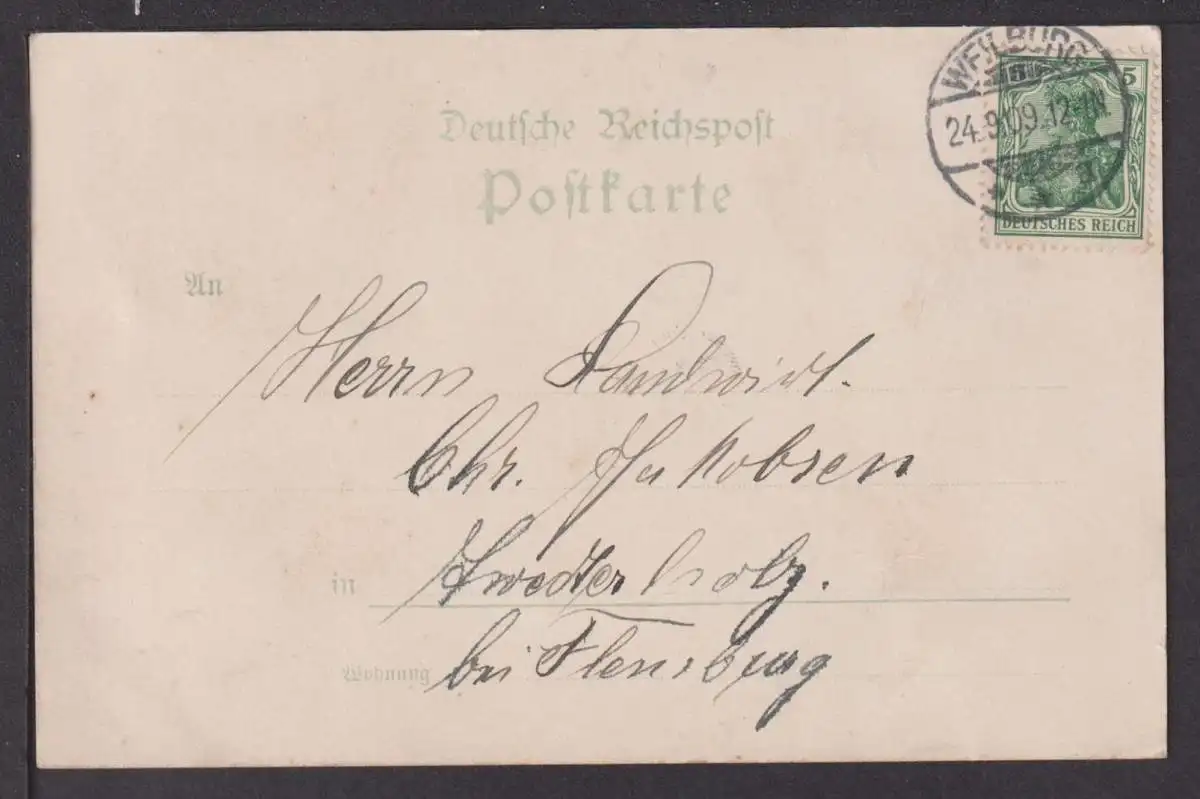 Deutsche Reichspost
Postkarte
WEILBURG
5
24.9.09.12-1N
DEUTSCHES REICH
An
Herrn Landwirt.
Chr. Jakobsen
in
bei Flensburg
Wohnung